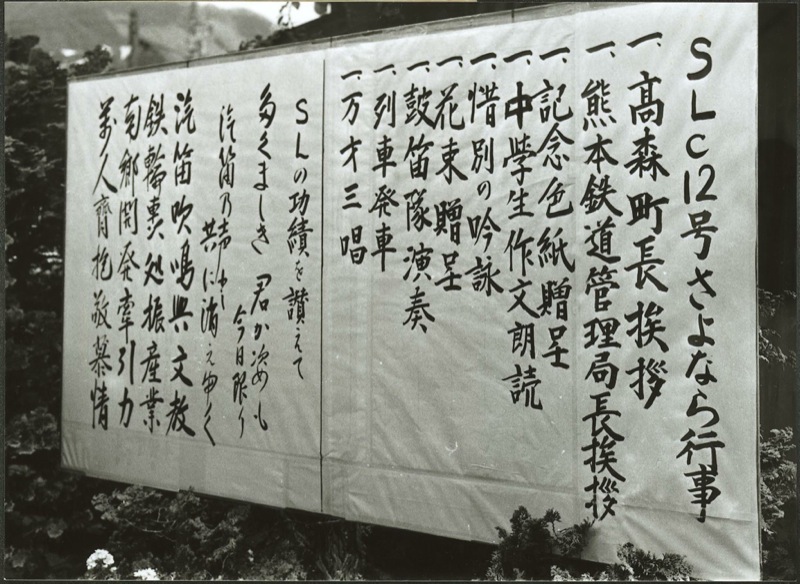 SLC12号さよなら行事
一、高森町長挨拶
一、熊本鉄道管理局長挨拶
一、記念色紙贈呈
一、中學生作文朗読
一、惜別の吟詠
一、花束贈呈
一、鼓笛隊演奏
一、列車発車
一、万才三唱
SLの功績を讃えて
多くましき 君か姿も
今日限り
汽笛乃声と
共に消えゆく
汽笛吹鳴興文教
鉄輪轟処振産業
南郷開発牽引力
萬人齊抱敬慕情